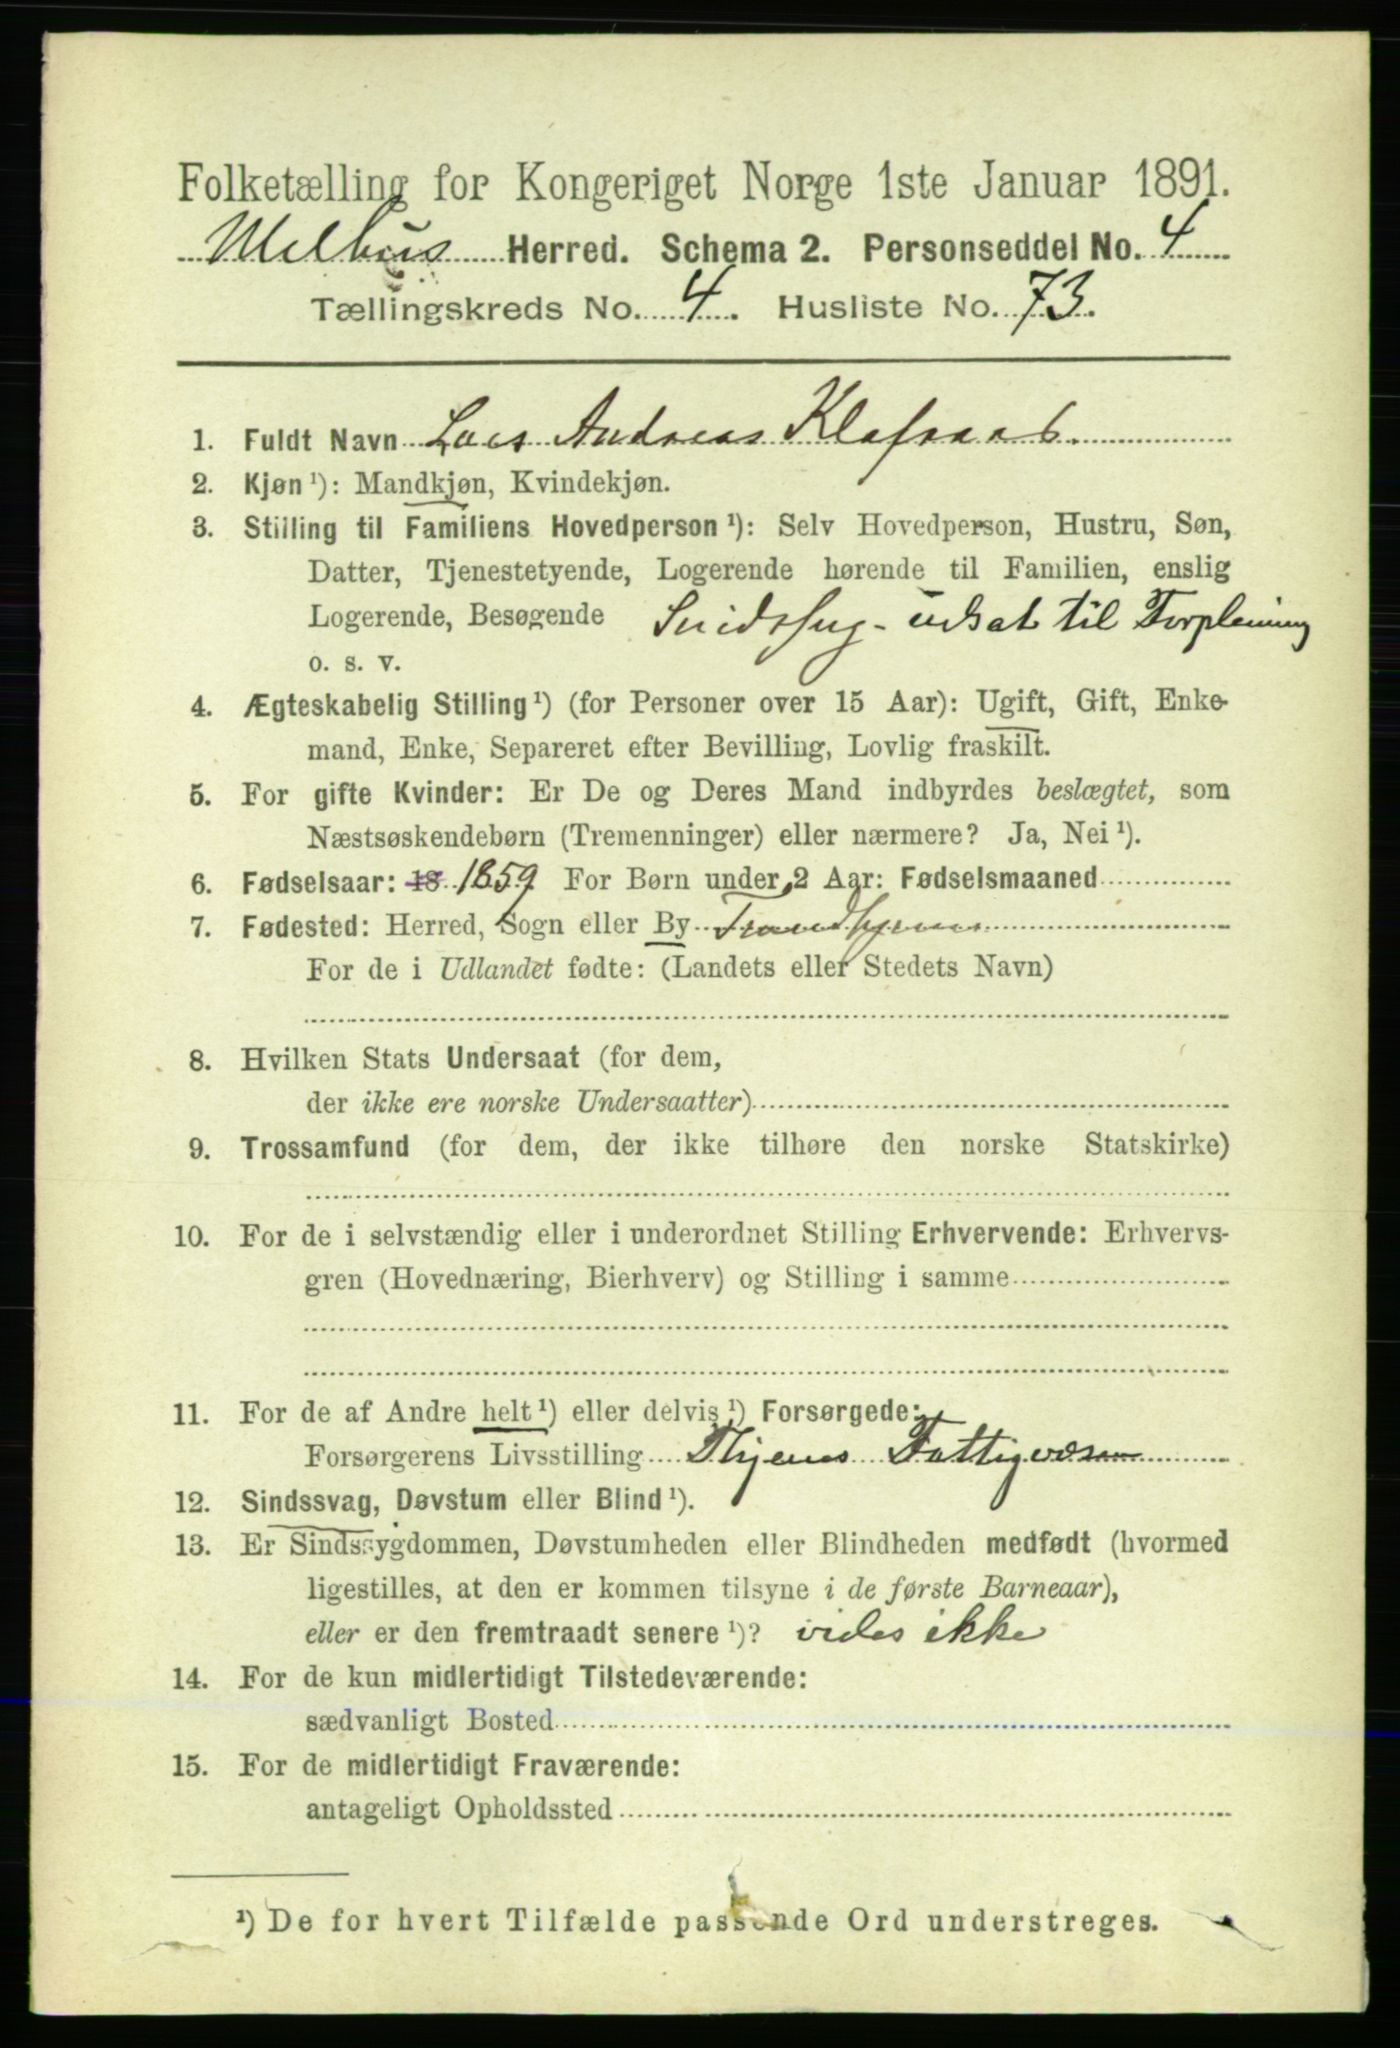 Folketælling for Kongeriget Norge 1ste Januar 1891.
Melhus Herred. Schema 2. Personseddel No. 4
Tællingskreds No. 4. Husliste No. 73.
1. Fuldt Navn Lars Andreas
2. Kjøn ¹): Mandkjøn, Kvindekjøn.
3. Stilling til Familiens Hovedperson ¹): Selv Hovedperson, Hustru, Søn,
Datter, Tjenestetyende, Logerende hørende til Familien, enslig
Logerende, Besøgende Sindssyg - udsat til Forpleining
o. s. v.
4. Ægteskabelig Stilling ¹) (for Personer over 15 Aar): Ugift, Gift, Enke-
mand, Enke, Separeret efter Bevilling, Lovlig fraskilt.
5. For gifte Kvinder: Er De og Deres Mand indbyrdes beslægtet, som
Næstsøskendebørn (Tremenninger) eller nærmere? Ja, Nei ¹).
6. Fødselsaar: 18 1859 For Børn under 2 Aar: Fødselsmaaned
7. Fødested: Herred, Sogn eller By Trondhjem
For de i Udlandet fødte: (Landets eller Stedets Navn)
8. Hvilken Stats Undersaat (for dem,
der ikke ere norske Undersaatter)
9. Trossamfund (for dem, der ikke tilhøre den norske Statskirke)
10. For de i selvstændig eller i underordnet Stilling Erhvervende: Erhvervs-
gren (Hovednæring, Bierhverv) og Stilling i samme
11. For de af Andre helt ¹) eller delvis ¹) Forsørgede:
Forsørgerens Livsstilling Thjems Fattigvæsen
12. Sindssvag, Døvstum eller Blind ¹).
13. Er Sindssygdommen, Døvstumheden eller Blindheden medfødt (hvormed
ligestilles, at den er kommen tilsyne i de første Barneaar),
eller er den fremtraadt senere ¹)? vides ikke
14. For de kun midlertidigt Tilstedeværende:
sædvanligt Bosted
15. For de midlertidigt Fraværende:
antageligt Opholdssted
¹) De for hvert Tilfælde passende Ord understreges.